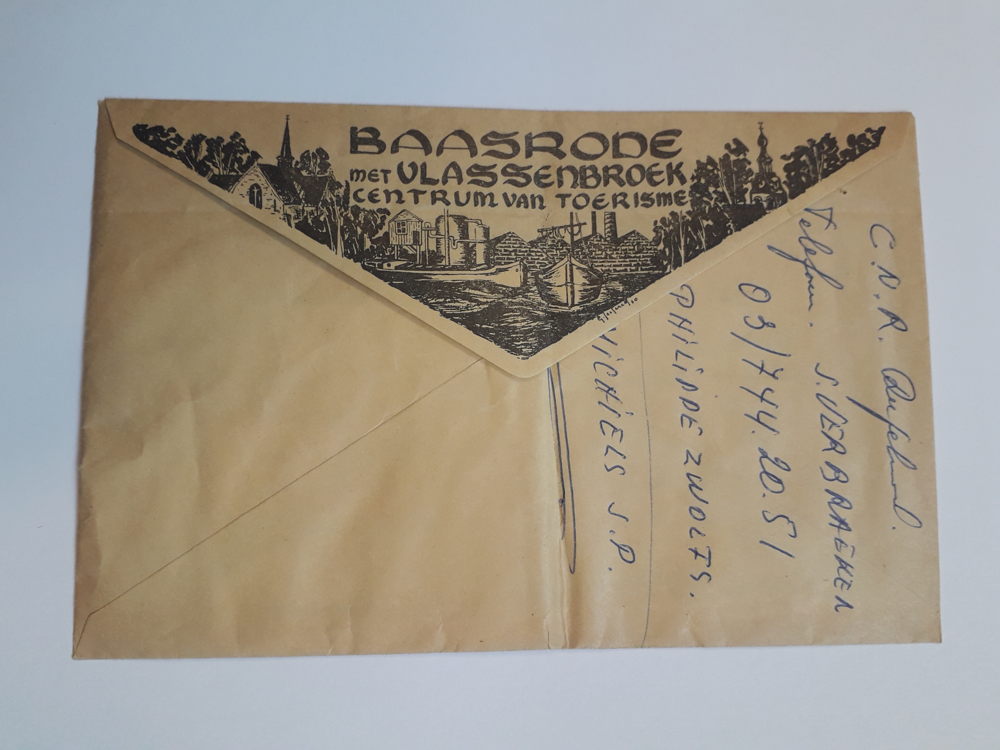 BAASRODE
met VLASSENBROEK
CENTRUM VAN TOERISME
C.N.R.
Telefoon. S. VERBRAEKEN
03/744.20.51
PHILIPPE ZWOLFS.
MICHIELS J.P.